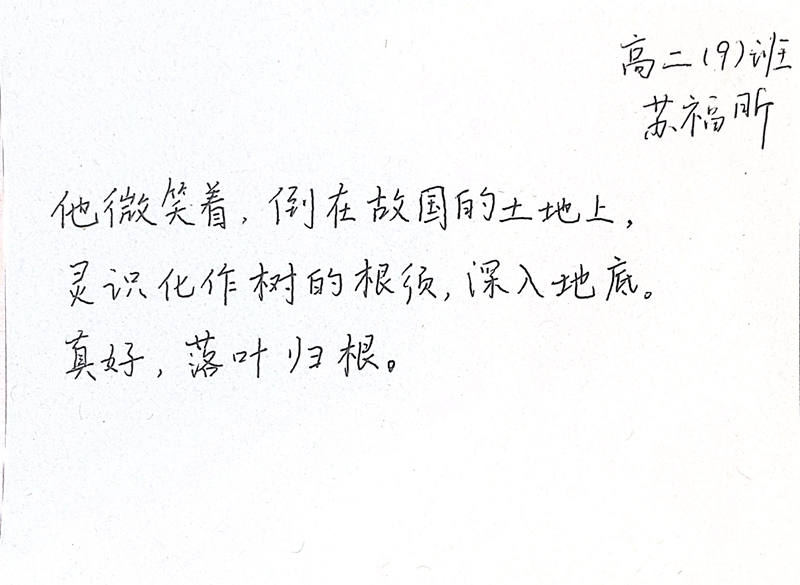 高二(9)班
苏福昕
他微笑着,倒在故国的土地上,
灵识化作树的根须,深入地底。
真好,落叶归根。